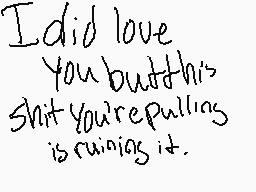 I did love
you but this
shit you're pulling
is ruining it.